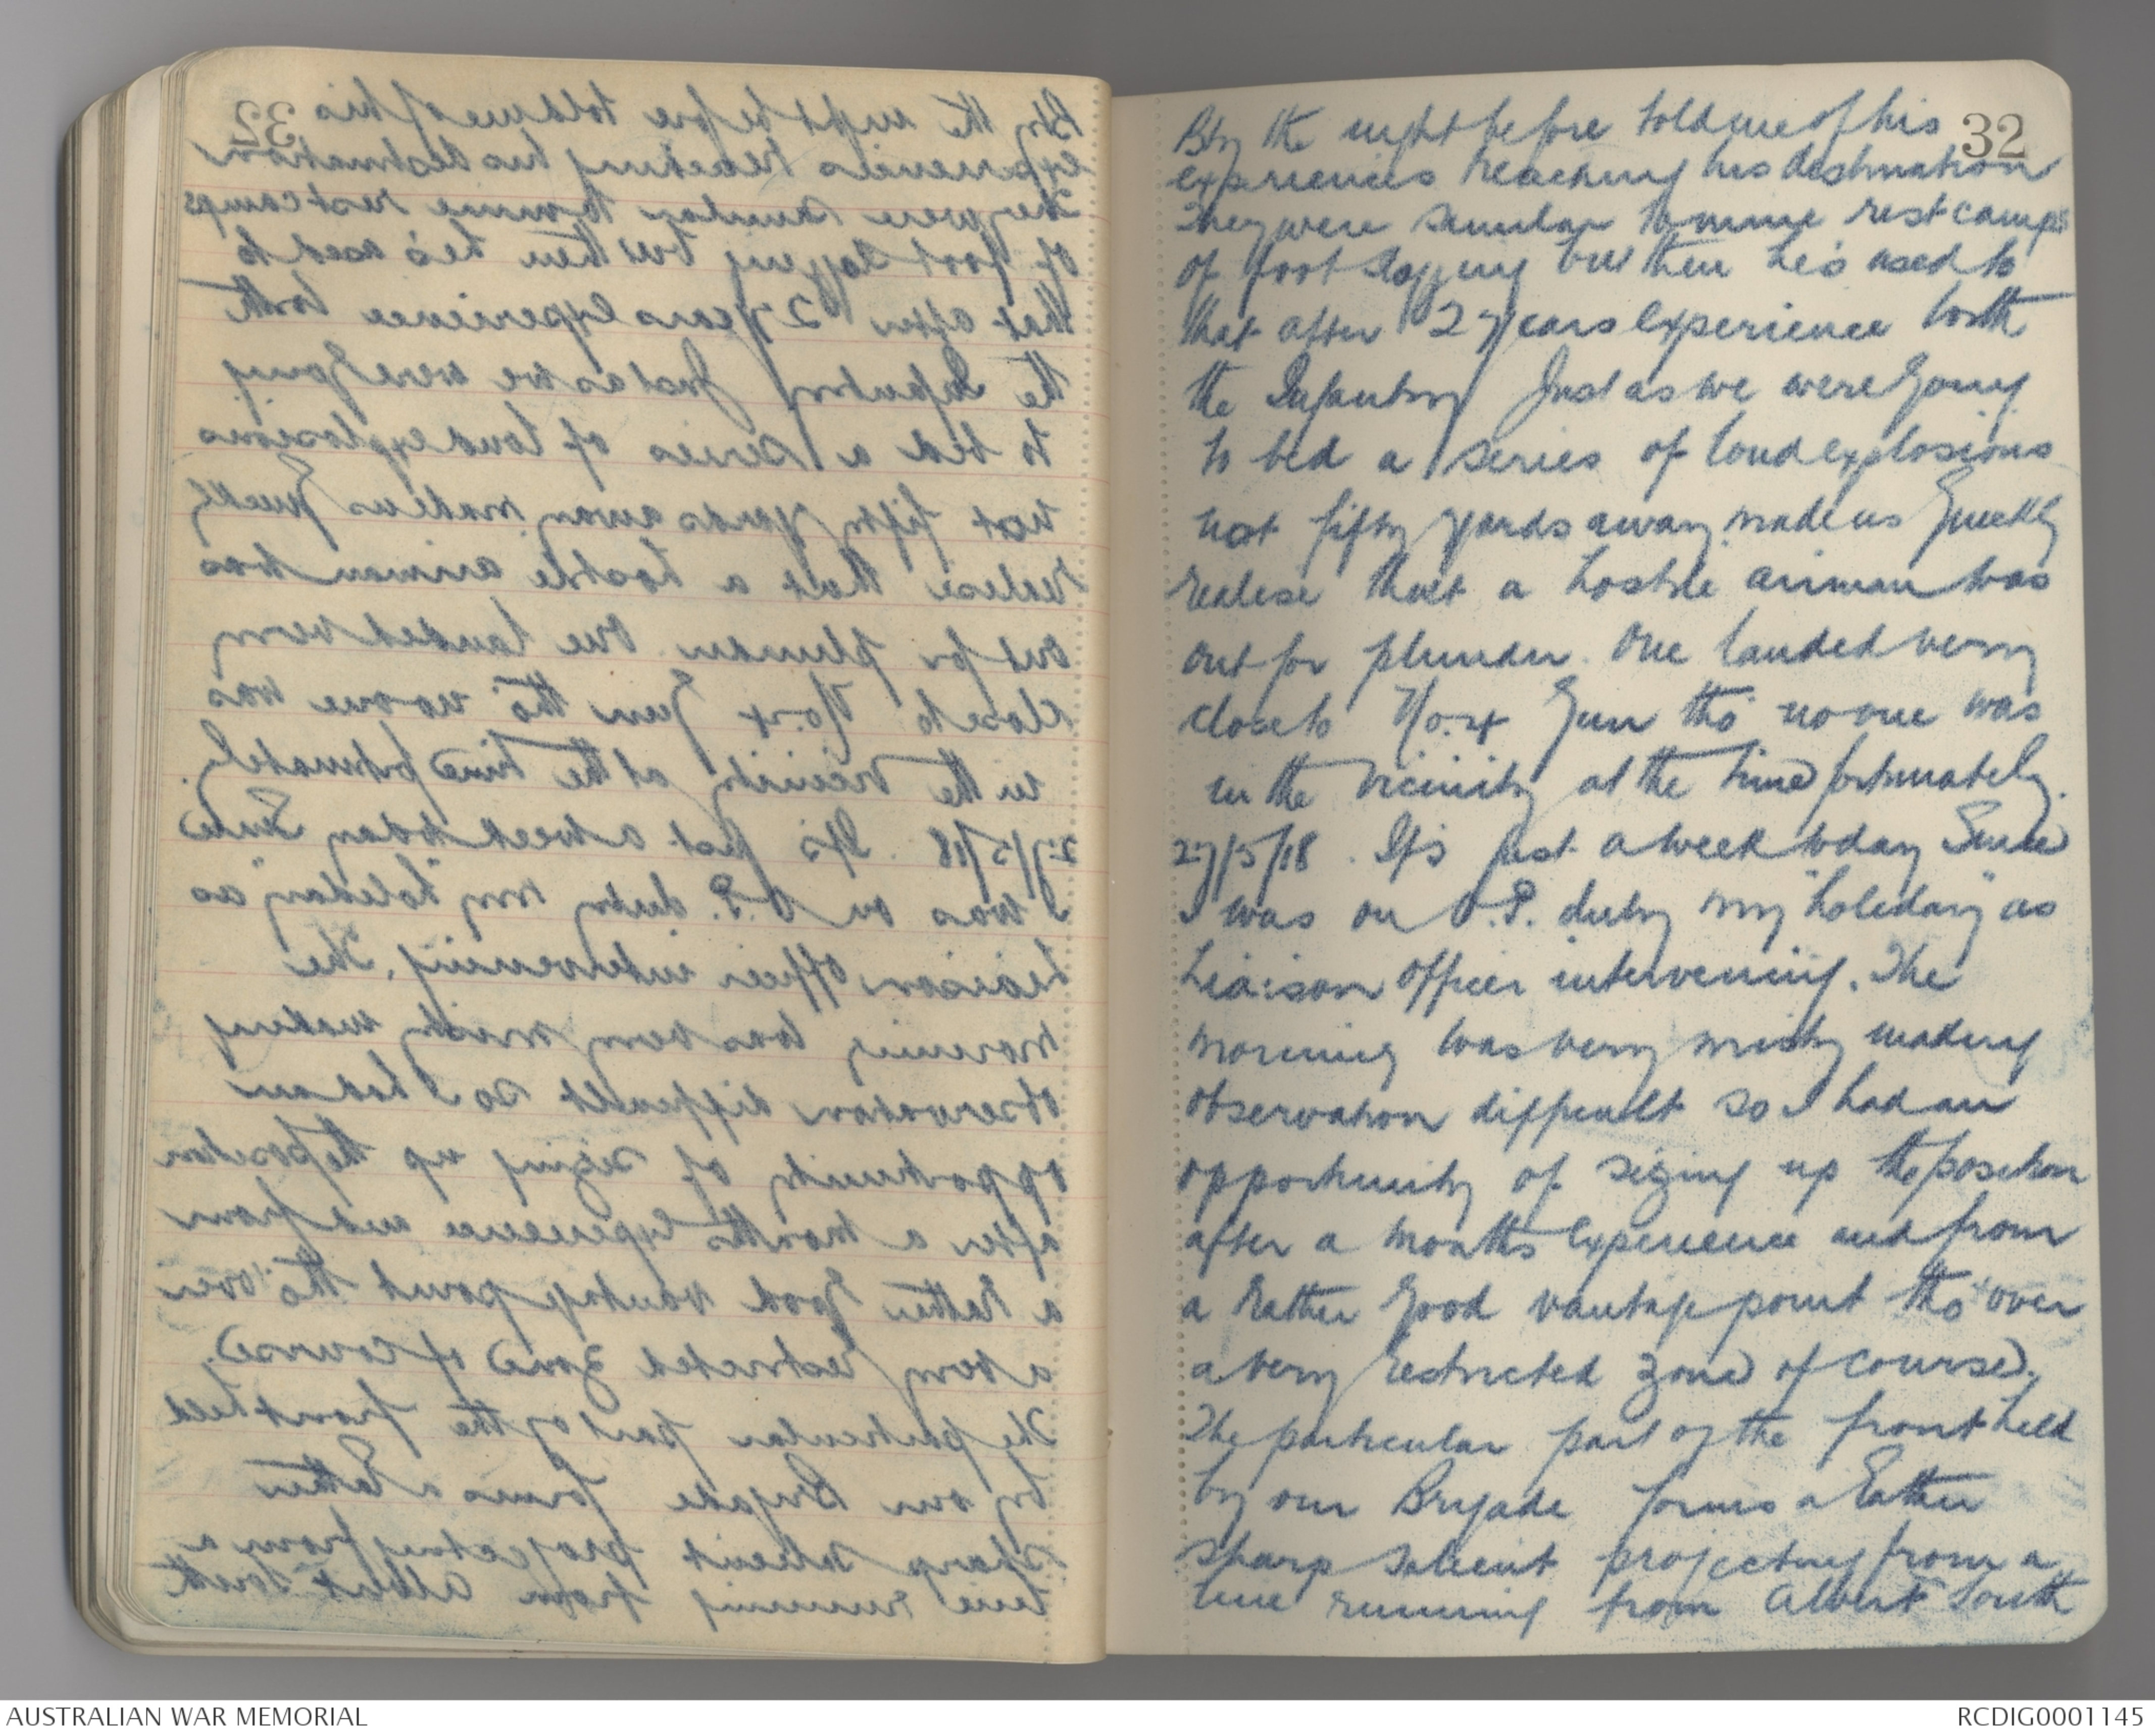 32
Bty the night before told me of his
experiences reaching his destination
They were similar to mine rest camps
of foot slogging but then he's used to
that after 2 years experience with
the Infantry Just as we were going
to bed a series of loud explosions
not fifty yards away made us quickly
realise that a hostile airman was
out for plunder. One landed very
close to No. 4 Gun tho' no one was
in the vicinity at the time fortunately.
27/5/18. It's just a week today since
I was on O.P. duty my "holiday" as
Liaison Officer intervening. The
morning was very misty making
observation difficult so I had an
opportunity of sizing up the position
after a months experience and from
a rather good vantage point tho' over
a very restricted zone of course.
The particular part of the front held
by our Brigade forms a rather
sharp salient projecting from a
line running from Albert South
AUSTRALIAN WAR MEMORIAL
RCDIG0001145